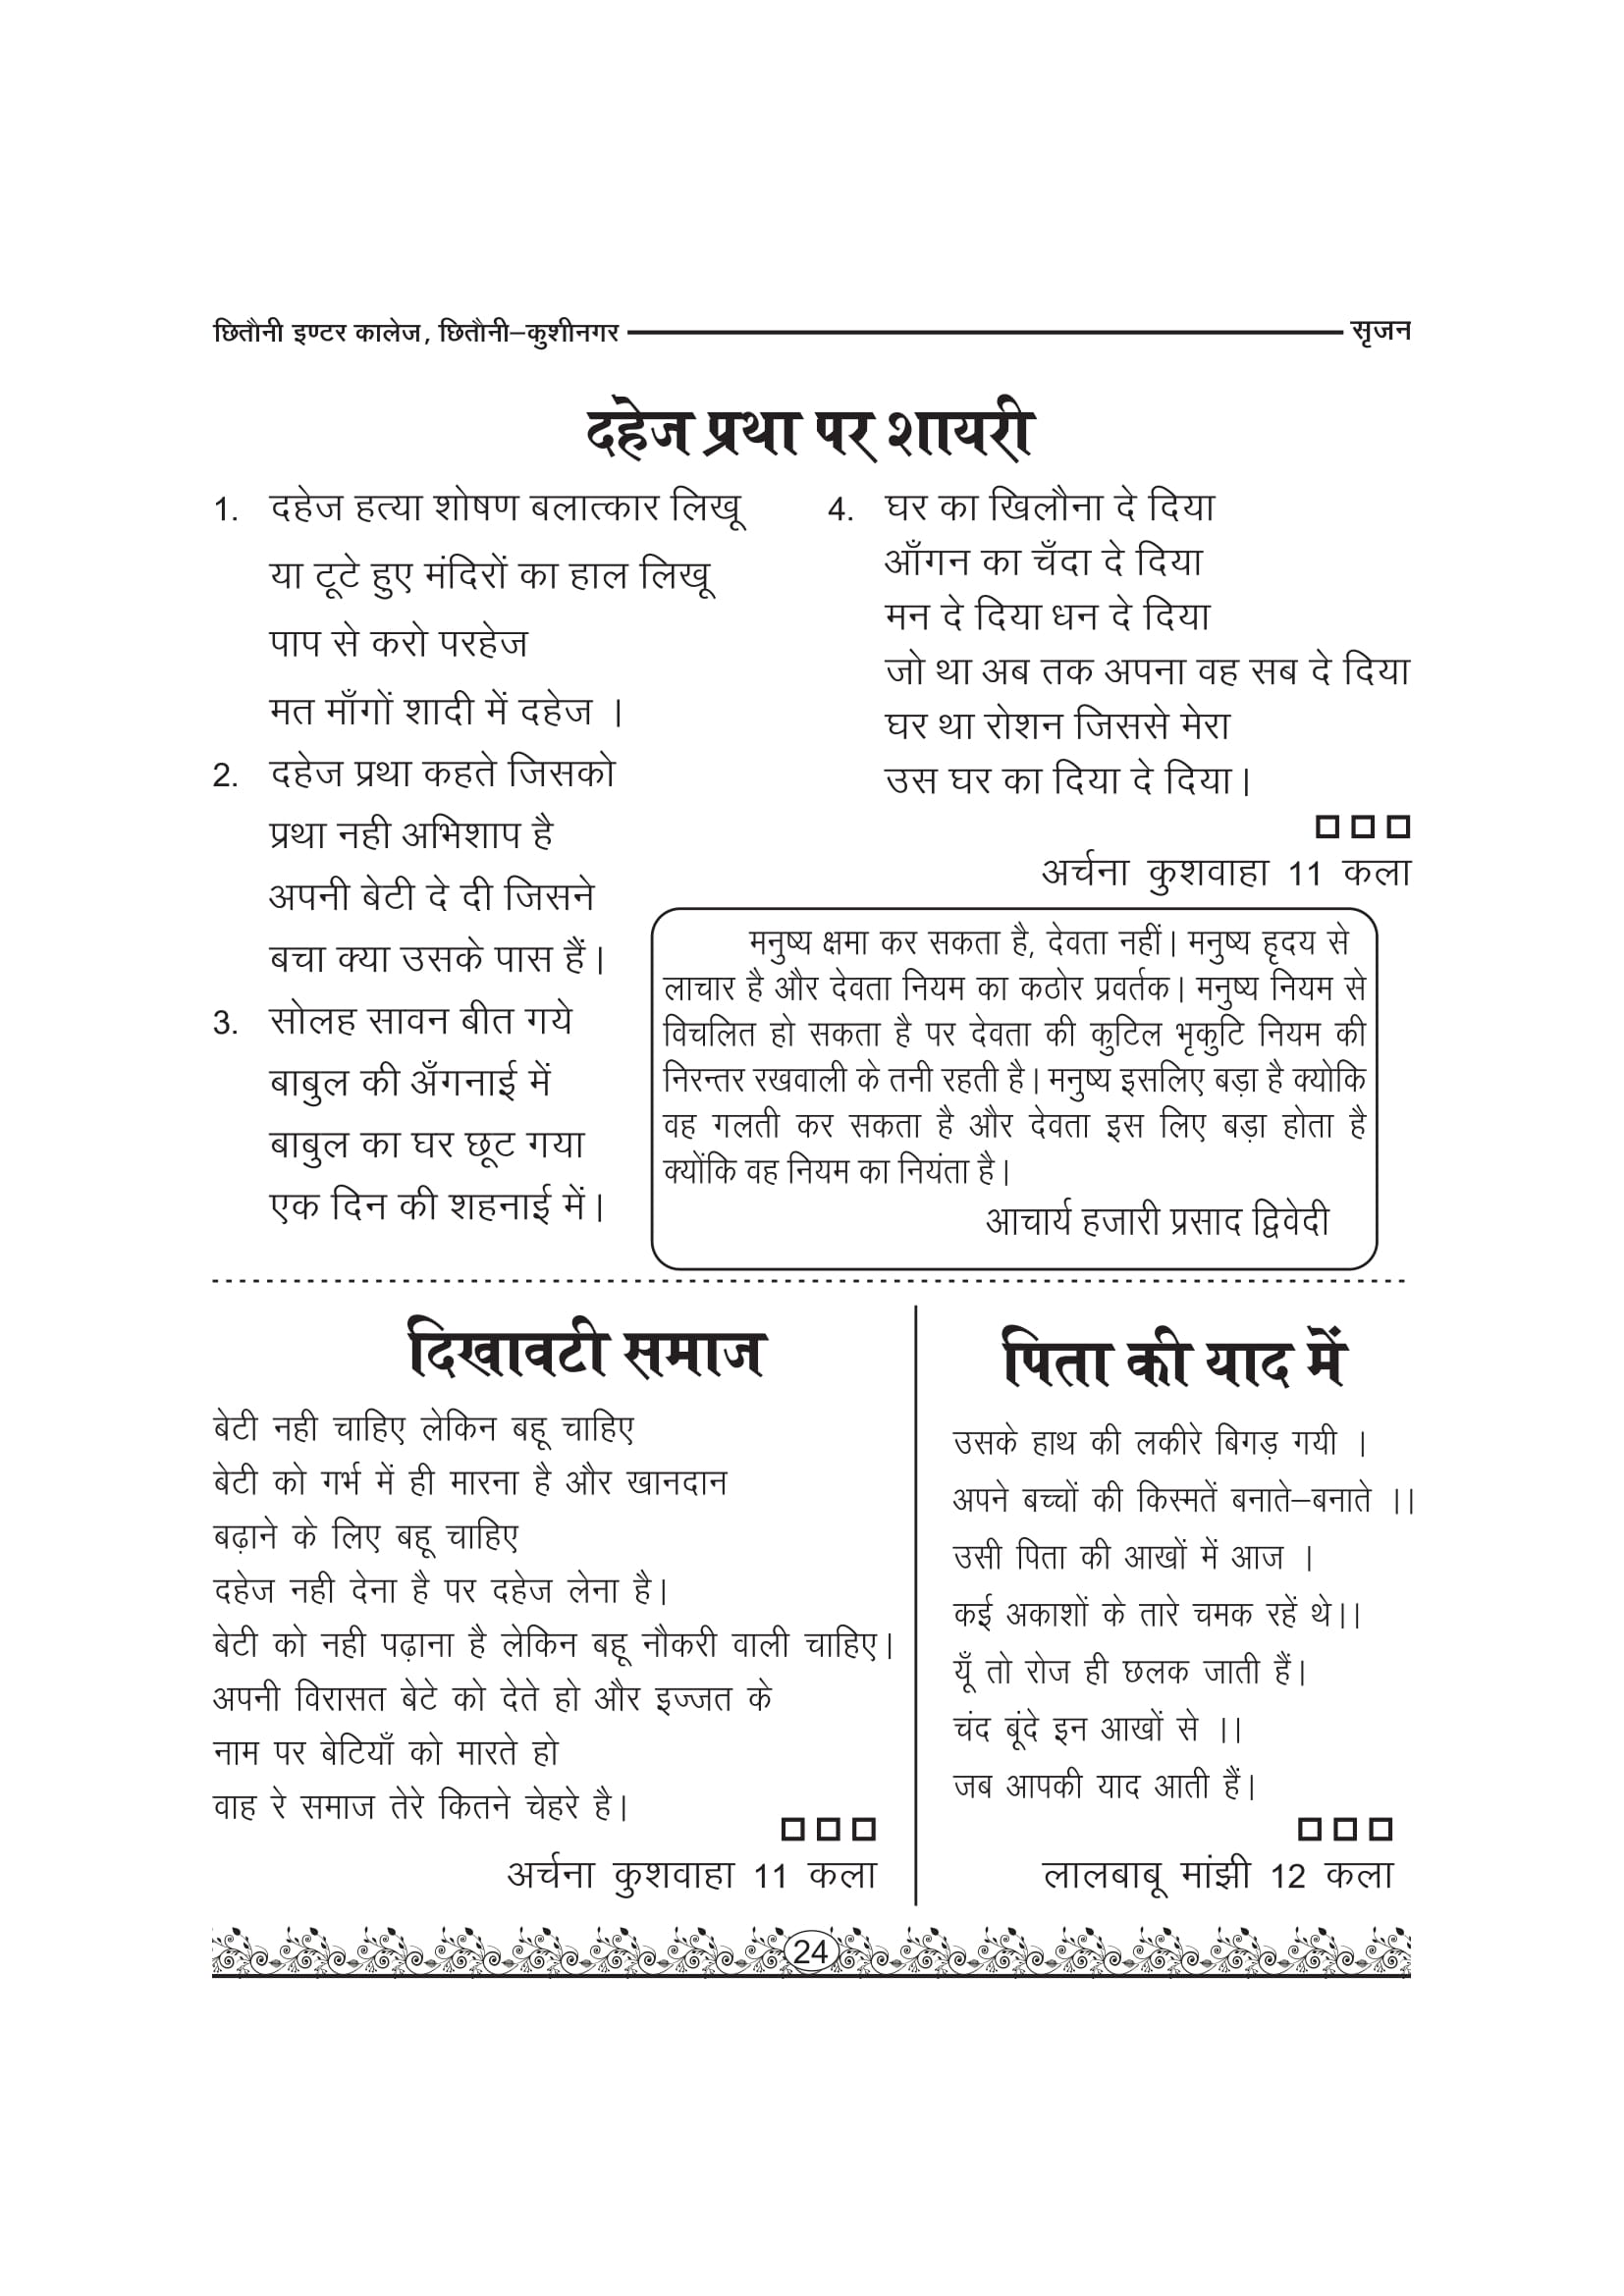 छितौनी इण्टर कालेज, छितौनी–कुशीनगर सृजन
दहेज प्रथा पर शायरी
1. दहेज हत्या शोषण बलात्कार लिखू
या टूटे हुए मंदिरों का हाल लिखू
पाप से करो परहेज
मत माँगों शादी में दहेज ।
2. दहेज प्रथा कहते जिसको
प्रथा नही अभिशाप है
अपनी बेटी दे दी जिसने
बचा क्या उसके पास हैं।
3. सोलह सावन बीत गये
बाबुल की अँगनाई में
बाबुल का घर छूट गया
एक दिन की शहनाई में।
4. घर का खिलौना दे दिया
आँगन का चँदा दे दिया
मन दे दिया धन दे दिया
जो था अब तक अपना वह सब दे दिया
घर था रोशन जिससे मेरा
उस घर का दिया दे दिया।
अर्चना कुशवाहा 11 कला
मनुष्य क्षमा कर सकता है, देवता नहीं। मनुष्य हृदय से
लाचार है और देवता नियम का कठोर प्रवर्तक। मनुष्य नियम से
विचलित हो सकता है पर देवता की कुटिल भृकुटि नियम की
निरन्तर रखवाली के तनी रहती है। मनुष्य इसलिए बड़ा है क्योकि
वह गलती कर सकता है और देवता इस लिए बड़ा होता है
क्योंकि वह नियम का नियंता है।
आचार्य हजारी प्रसाद द्विवेदी
दिखावटी समाज
बेटी नही चाहिए लेकिन बहू चाहिए
बेटी को गर्भ में ही मारना है और खानदान
बढ़ाने के लिए बहू चाहिए
दहेज नही देना है पर दहेज लेना है।
बेटी को नही पढ़ाना है लेकिन बहू नौकरी वाली चाहिए।
अपनी विरासत बेटे को देते हो और इज्जत के
नाम पर बेटियाँ को मारते हो
वाह रे समाज तेरे कितने चेहरे है।
अर्चना कुशवाहा 11 कला
पिता की याद में
उसके हाथ की लकीरे बिगड़ गयी ।
अपने बच्चों की किस्मतें बनाते–बनाते ।।
उसी पिता की आखों में आज ।
कई अकाशों के तारे चमक रहें थे।।
यूँ तो रोज ही छलक जाती हैं।
चंद बूंदे इन आखों से ।।
जब आपकी याद आती हैं।
लालबाबू मांझी 12 कला
24